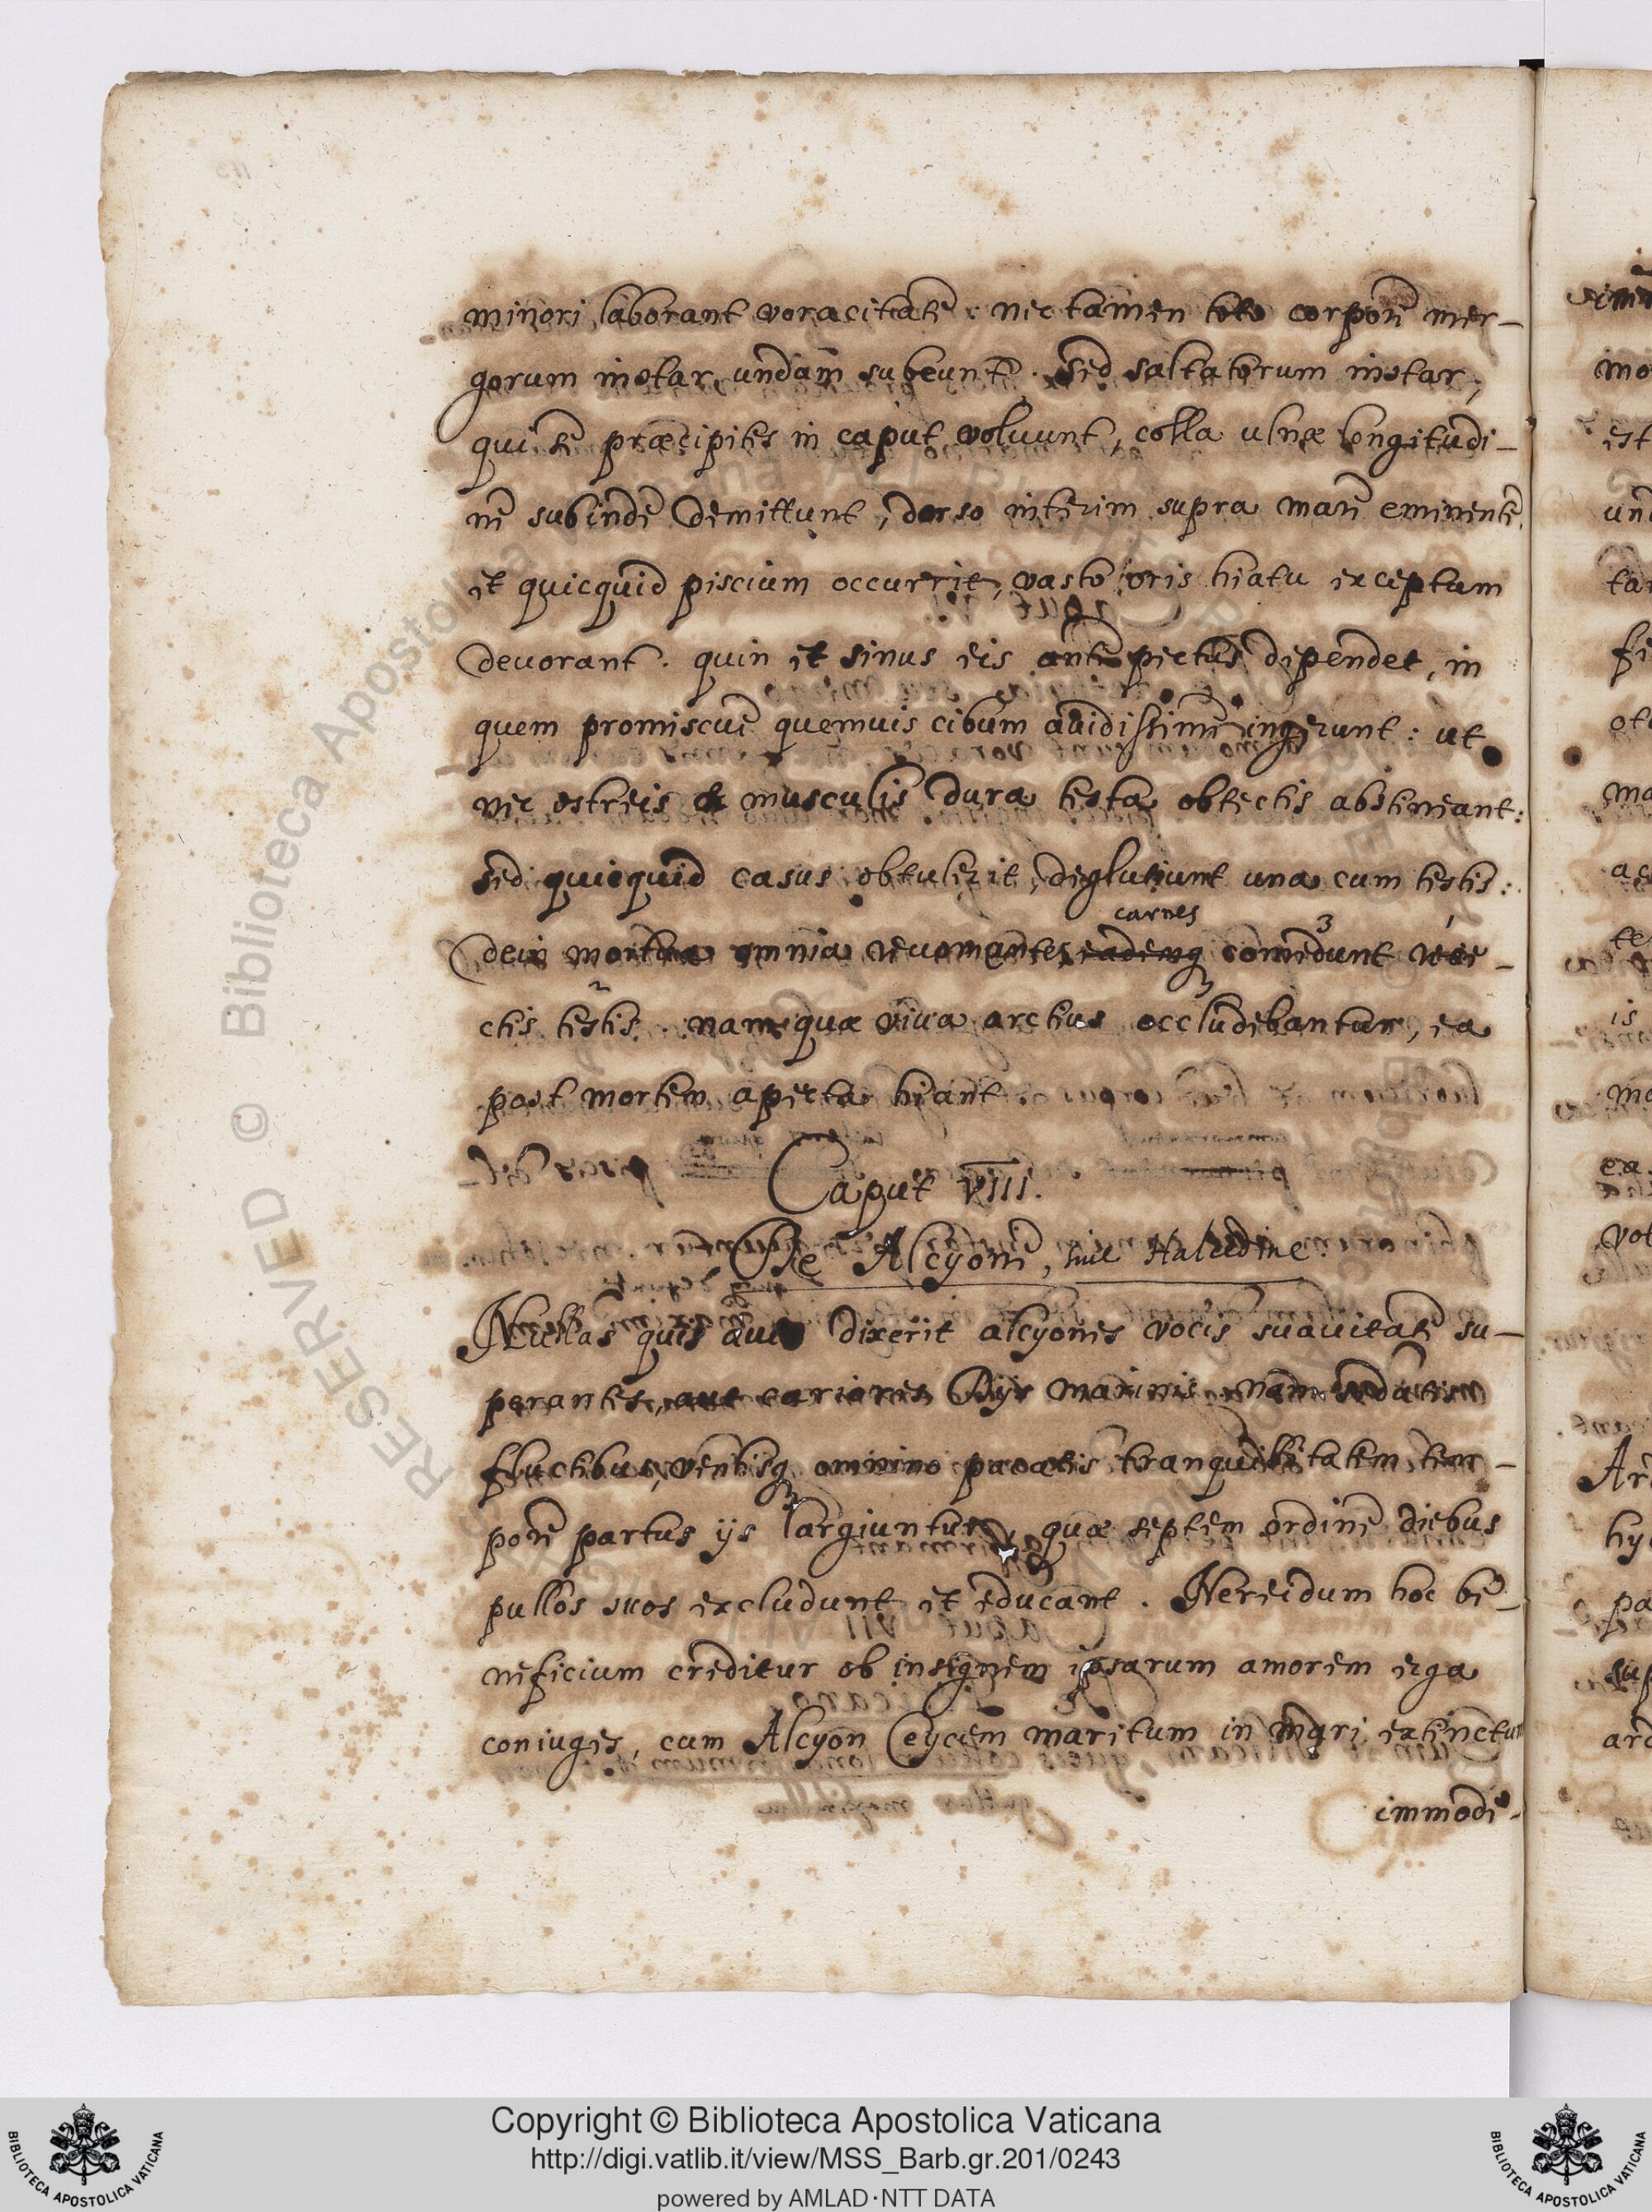 minori laborant voracitate: nec tamen toto corpore mer-
gorum instar undam subeunt. sed saltatorum instar,
qui se præcipites in caput voluunt, colla ulnæ longitudi-
ne subinde demittunt, dorso interim supra mare eminente,
et quicquid piscium occurrit, vasto oris hiatu exceptum
deuorant. quin et sinus eis ante pectus dependet, in
quem promiscue quemuis cibum auidissime ingerunt: ut
nec ostreis et musculis dura testa obtectis abstineant:
sed quicquid casus obtulerit, deglutiunt una cum testis:
carnes
dein mortua omnia reuomantes, eademq comedunt reie-
ctis testis. nam quæ viua arctius occludebantur, ea
post mortem aperta hiant.
Caput VIII.
De Alcyone, siue Halcedine.
Nullas quis aues dixerit alcyones vocis suauitate su-
perantes, aut cariores Dijs marinis. nam sedatis
fluctibus, ventisq omnino pacatis tranquillitatem tem-
pore partus ijs largiuntur, quæ septem ordine diebus
pullos suos excludunt et educant. Nereidum hoc be-
neficium creditur ob insignem ipsarum amorem erga
coniuges, cum Alcyon Ceycem maritum in mari extinctum
immodi-
Copyright © Biblioteca Apostolica Vaticana
http://digi.vatlib.it/view/MSS_Barb.gr.201/0243
powered by AMLAD·NTT DATA